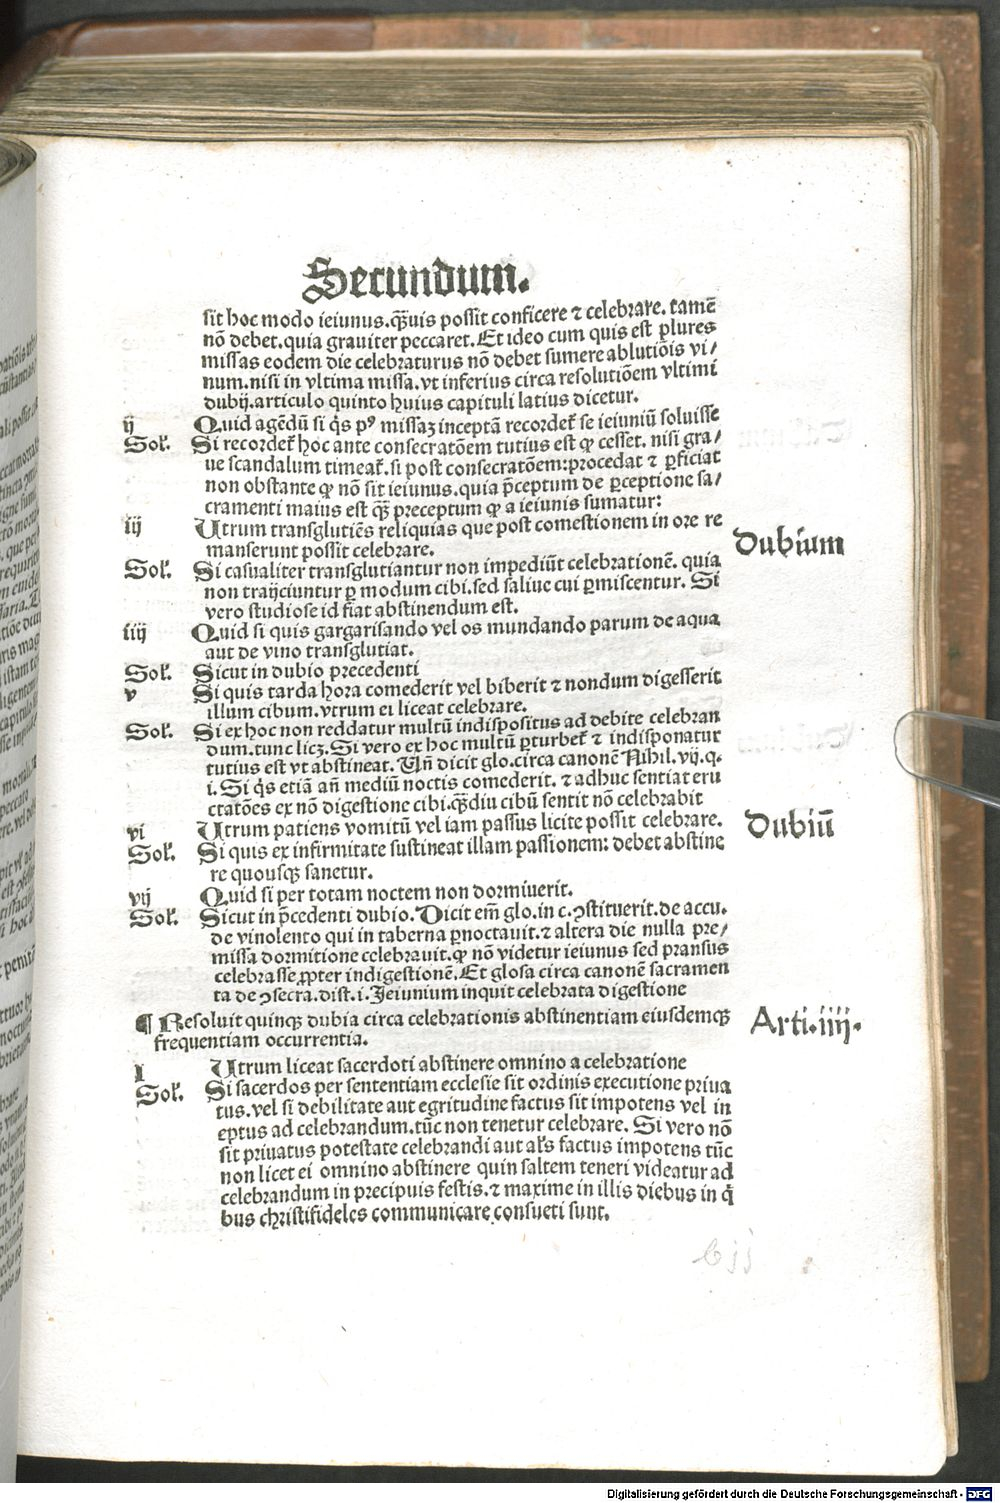 Secundum.
sit hoc modo ieiunus. q̃uis possit conficere ⁊ celebrare. tamē
nō debet. quia grauiter peccaret. Et ideo cum quis est p̱lures
missas eodem die celebraturus nō debet sumere ablutiōis vi/
num. nisi in vltima missa. vt inferius circa resolutiōem vltimi
dubij. articulo quinto huius capituli latius dicetur.
ij Quid agēdū si q̇s pꝰ missaꝫ inceptā recordet᷑ se ieiuniū soluisse
Sol᷑. Si recordet᷑ hoc ante consecratōem tutius est ꝙ cesset. nisi gra/
ue scandalum timeat᷑. si post consecratōem: procedat ⁊ ꝑficiat
non obstante ꝙ nō sit ieiunus. quia p̄ceptum de ꝑceptione sa/
cramenti maius est q̃ꝫ preceptum ꝙ a ieiunis sumatur:
iij Utrum transglutiēs reliquias que post comestionem in ore re
manserunt possit celebrare.
Dubium
Sol᷑. Si casualiter transglutiantur non impediūt celebrationē. quia
non traijciuntur ꝑ modum cibi. sed saliue cui ꝑmiscentur. Si
vero studiose id fiat abstinendum est.
iiij Quid si quis gargarisando vel os mundando parum de aqua
aut de vino transglutiat.
Sol᷑. Sicut in dubio precedenti
v Si quis tarda hora comederit vel biberit ⁊ nondum digesserit
illum cibum. vtrum ei liceat celebrare.
Sol᷑. Si ex hoc non reddatur multū indispositus ad debite celebran
dum. tunc licꝫ. Si vero ex hoc multū ꝑturbet᷑ ⁊ indisponatur
tutius est vt abstineat. Un̄ dicit glo. circa canonē Nihil. vij. q.
i. Si q̇s etiā an̄ mediū noctis comederit. ⁊ adhuc sentiat eru
ctatōes ex nō digestione cibi. q̃ꝫdiu cibū sentit nō celebrabit
vi Utrum patiens vomitū vel iam passus licite possit celebrare.
Dubiū
Sol᷑. Si quis ex infirmitate sustineat illam passionem: debet abstine
re quousqꝫ sanetur.
vij Quid si per totam noctem non dormiuerit.
Sol᷑. Sicut in p̄cedenti dubio. Dicit em̄ glo. in c. ꝯstituerit. de accu.
de vinolento qui in taberna ꝑnoctauit. ⁊ altera die nulla pre/
missa dormitione celebrauit. ꝙ nō videtur ieiunus sed pransus
celebrasse ꝓpter indigestionē. Et glosa circa canonē sacramen
ta de ꝯsecra. dist. i. Jeiunium inquit celebrata digestione
¶ Resoluit quinqꝫ dubia circa celebrationis abstinentiam eiusdemqꝫ
frequentiam occurrentia.
Arti. iiij.
I Utrum liceat sacerdoti abstinere omnino a celebratione
Sol᷑. Si sacerdos per sententiam ecclesie sit ordinis executione priua
tus. vel si debilitate aut egritudine factus sit impotens vel in
eptus ad celebrandum. tūc non tenetur celebrare. Si vero nō
sit priuatus potestate celebrandi aut al᷑s factus impotens tūc
non licet ei omnino abstinere quin saltem teneri videatur ad
celebrandum in precipuis festis. ⁊ maxime in illis diebus in q̇
bus christifideles communicare consueti sunt.
b jj
Digitalisierung gefördert durch die Deutsche Forschungsgemeinschaft - DFG